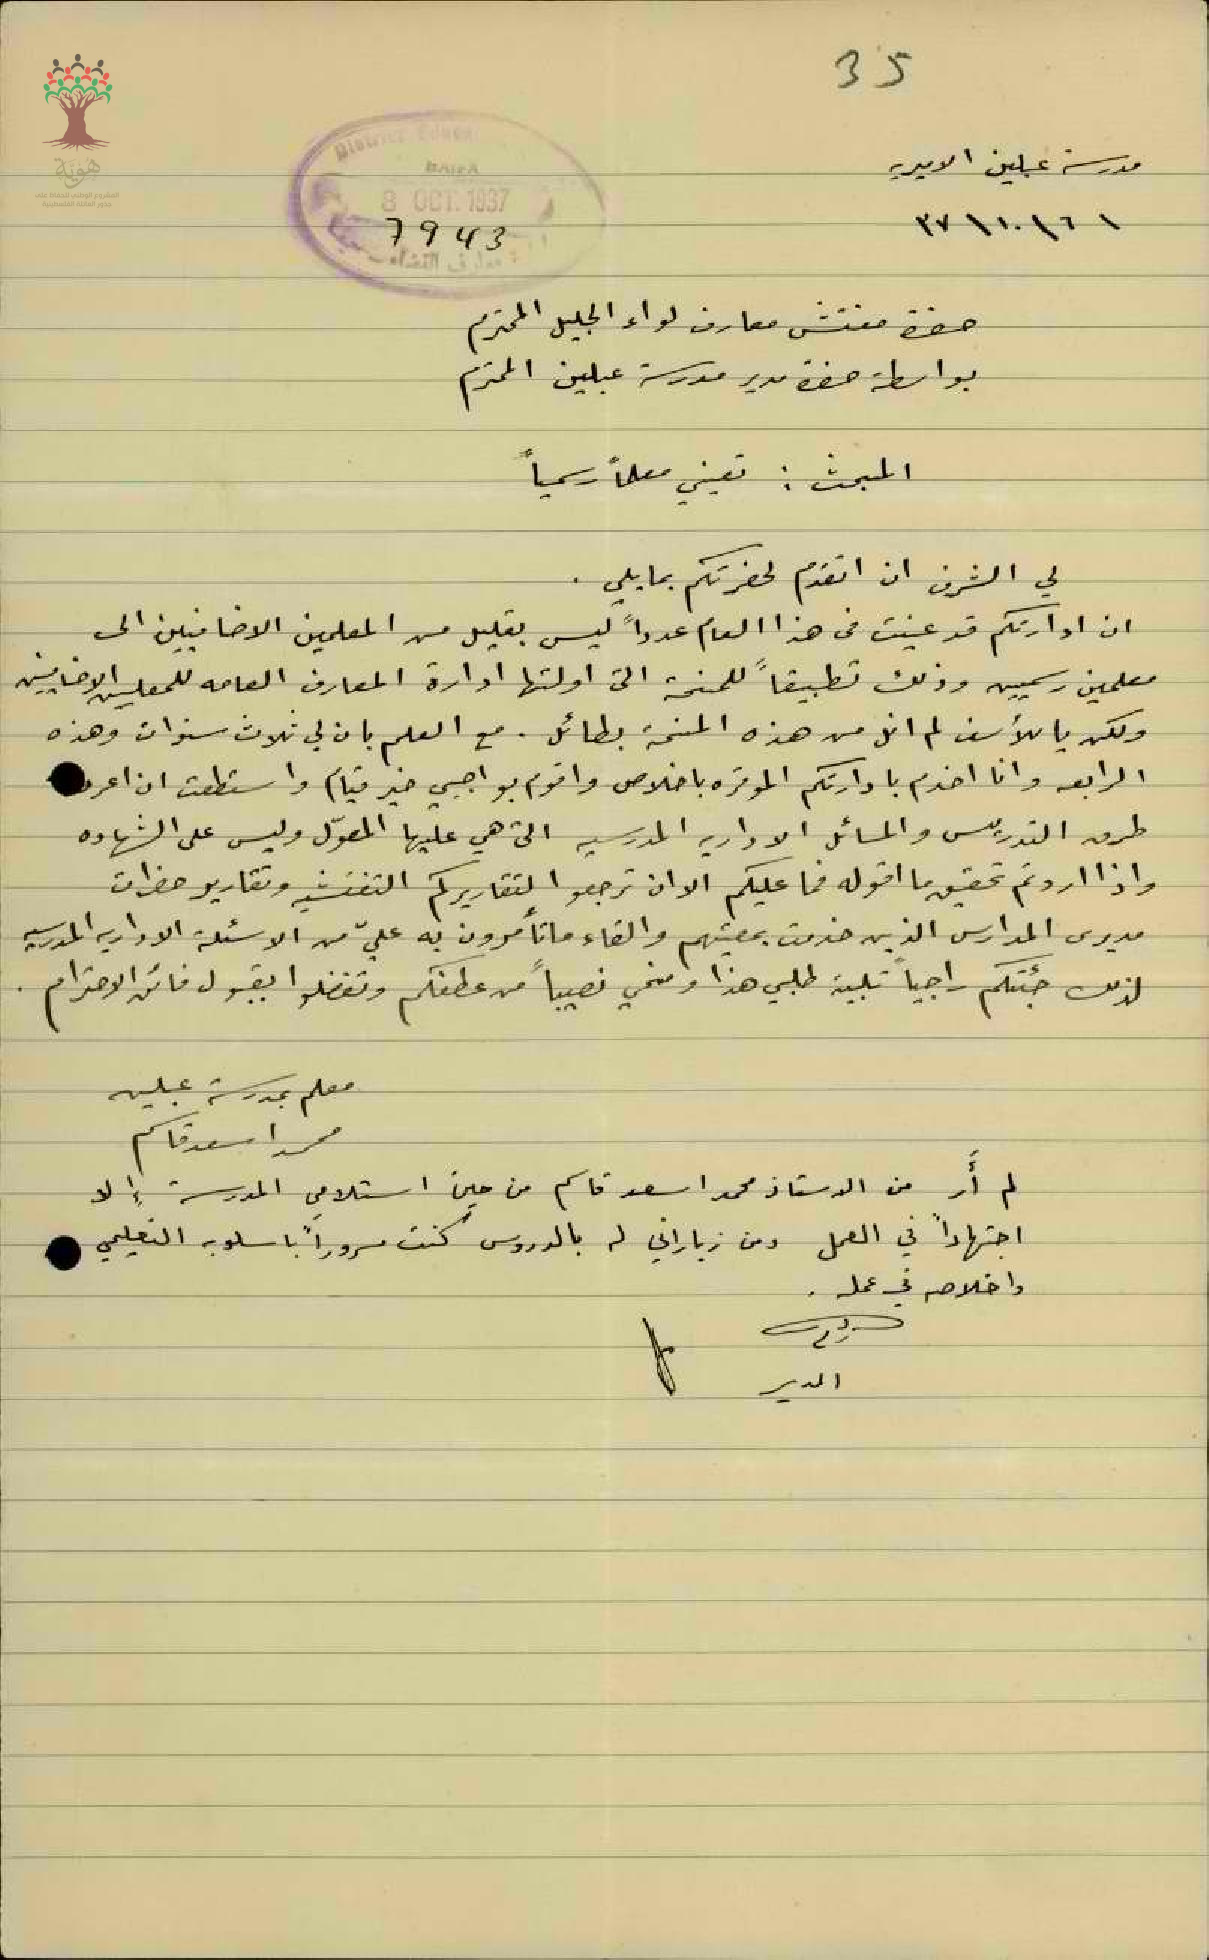 35
هوية
المشروع الوطني للحفاظ على
جذور العائلة الفلسطينية
District Educa
HAIFA
8 OCT. 1937
7943
معارف القضاء
مدرسة عبلين الاميريه
٦ \ ١٠ \ ٣٧
حضرة مفتش معارف لواء الجليل المحترم
بواسطة حضرة مدير مدرسة عبلين المحترم
المبحث : تعيني معلماً رسمياً
لي الشرف ان اتقدم لحضرتكم بما يلي .
ان ادارتكم قد عينت في هذا العام عدداً ليس بقليل من المعلمين الاضافيين الى
معلمين رسميين وذلك تطبيقاً للمنحة التي اولتها ادارة المعارف العامه للمعلمين الاضافيين
ولكن يا للأسف لم انل من هذه المنحة بطائل . مع العلم بان لي ثلاث سنوات وهذه
الرابعه وانا اخدم بادارتكم الموقره باخلاص واقوم بواجبي خير قيام واستطعت ان اعرف
طرق التدريس والمسائل الاداريه المدرسيه التي هي عليها المعوّل وليس على الشهاده
واذا اردتم تحقيق ما اقوله فما عليكم الا ان ترجعوا لتقاريركم التفتشيه وتقارير حضرات
مديري المدارس الذين خدمت بمعيتهم والقاء ما تأمرون به عليّ من الاسئلة الاداريه المدرسيه
لذلك جئتكم راجياً تلبية طلبي هذا ومنحي نصيباً من عطفكم وتفضلوا بقبول فائق الاحترام .
معلم بمدرسة عبلين
محمد اسعد قاسم
لم أَر من الاستاذ محمد اسعد قاسم من حين استلامي المدرسة إلا
اجتهاداً في العمل ومن زياراتي له بالدروس كنت مسروراً باسلوبه التعليمي
واخلاصه في عمله .
المدير